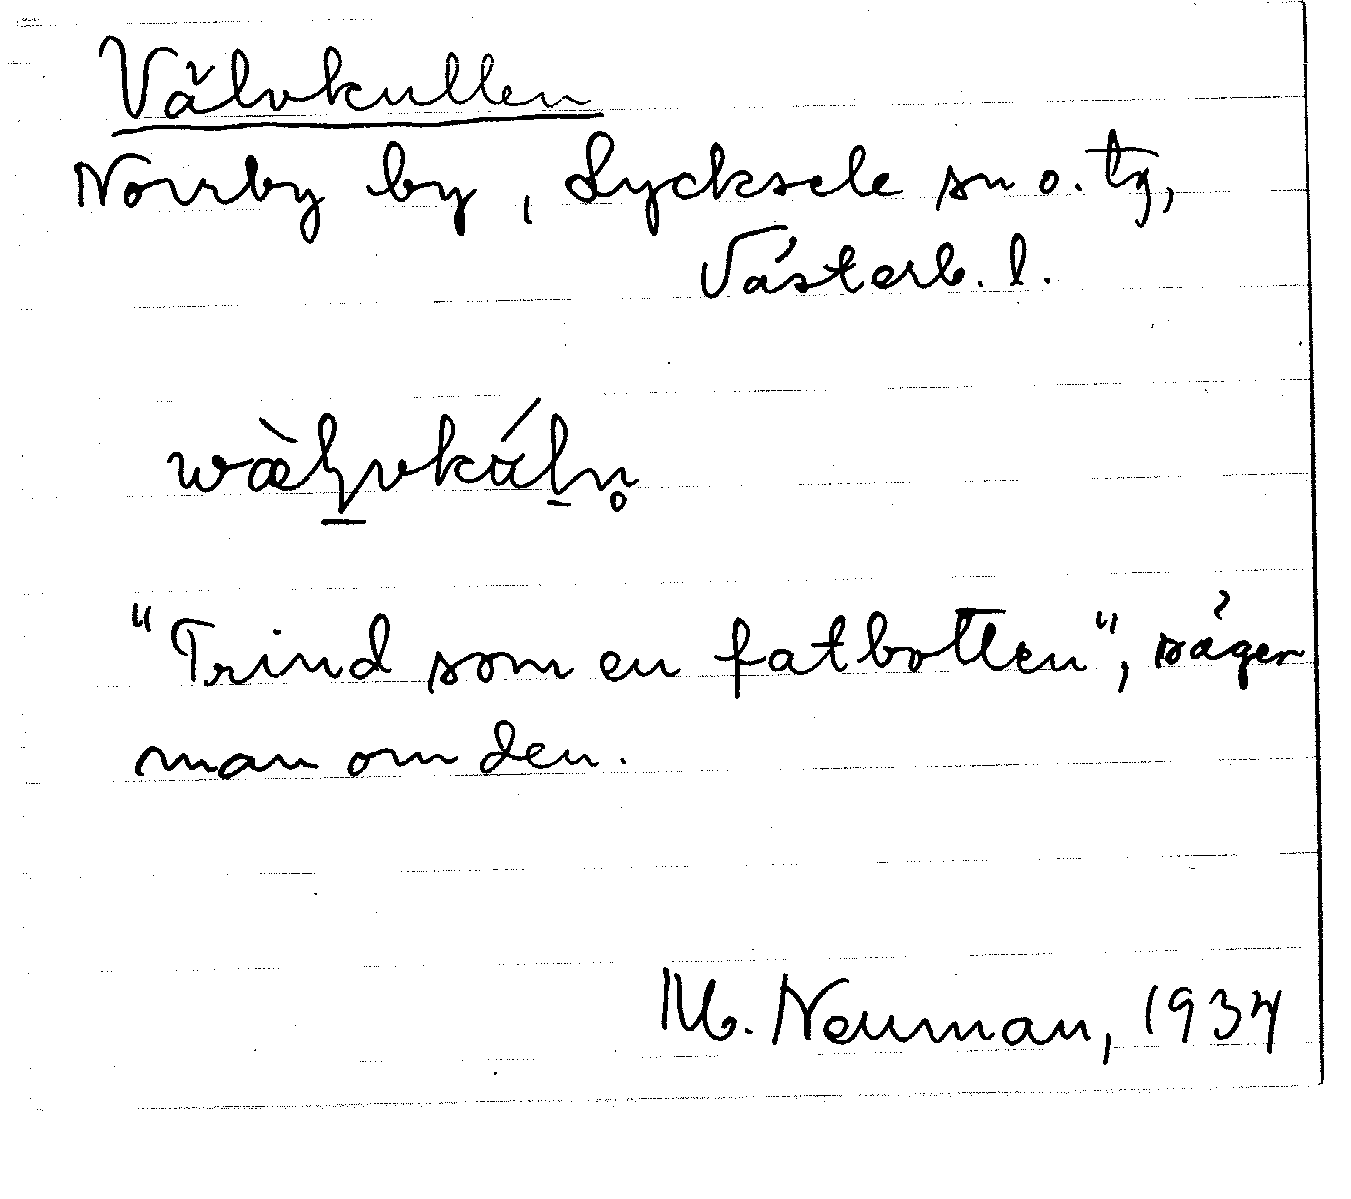 Välvkullen
Norrby by, Lycksele sn o. tg,
Västerb. l.
wæ̀l̠vkúl̠n̥
"Trind som en fatbotten", säger
man om den.
M. Neuman, 1934